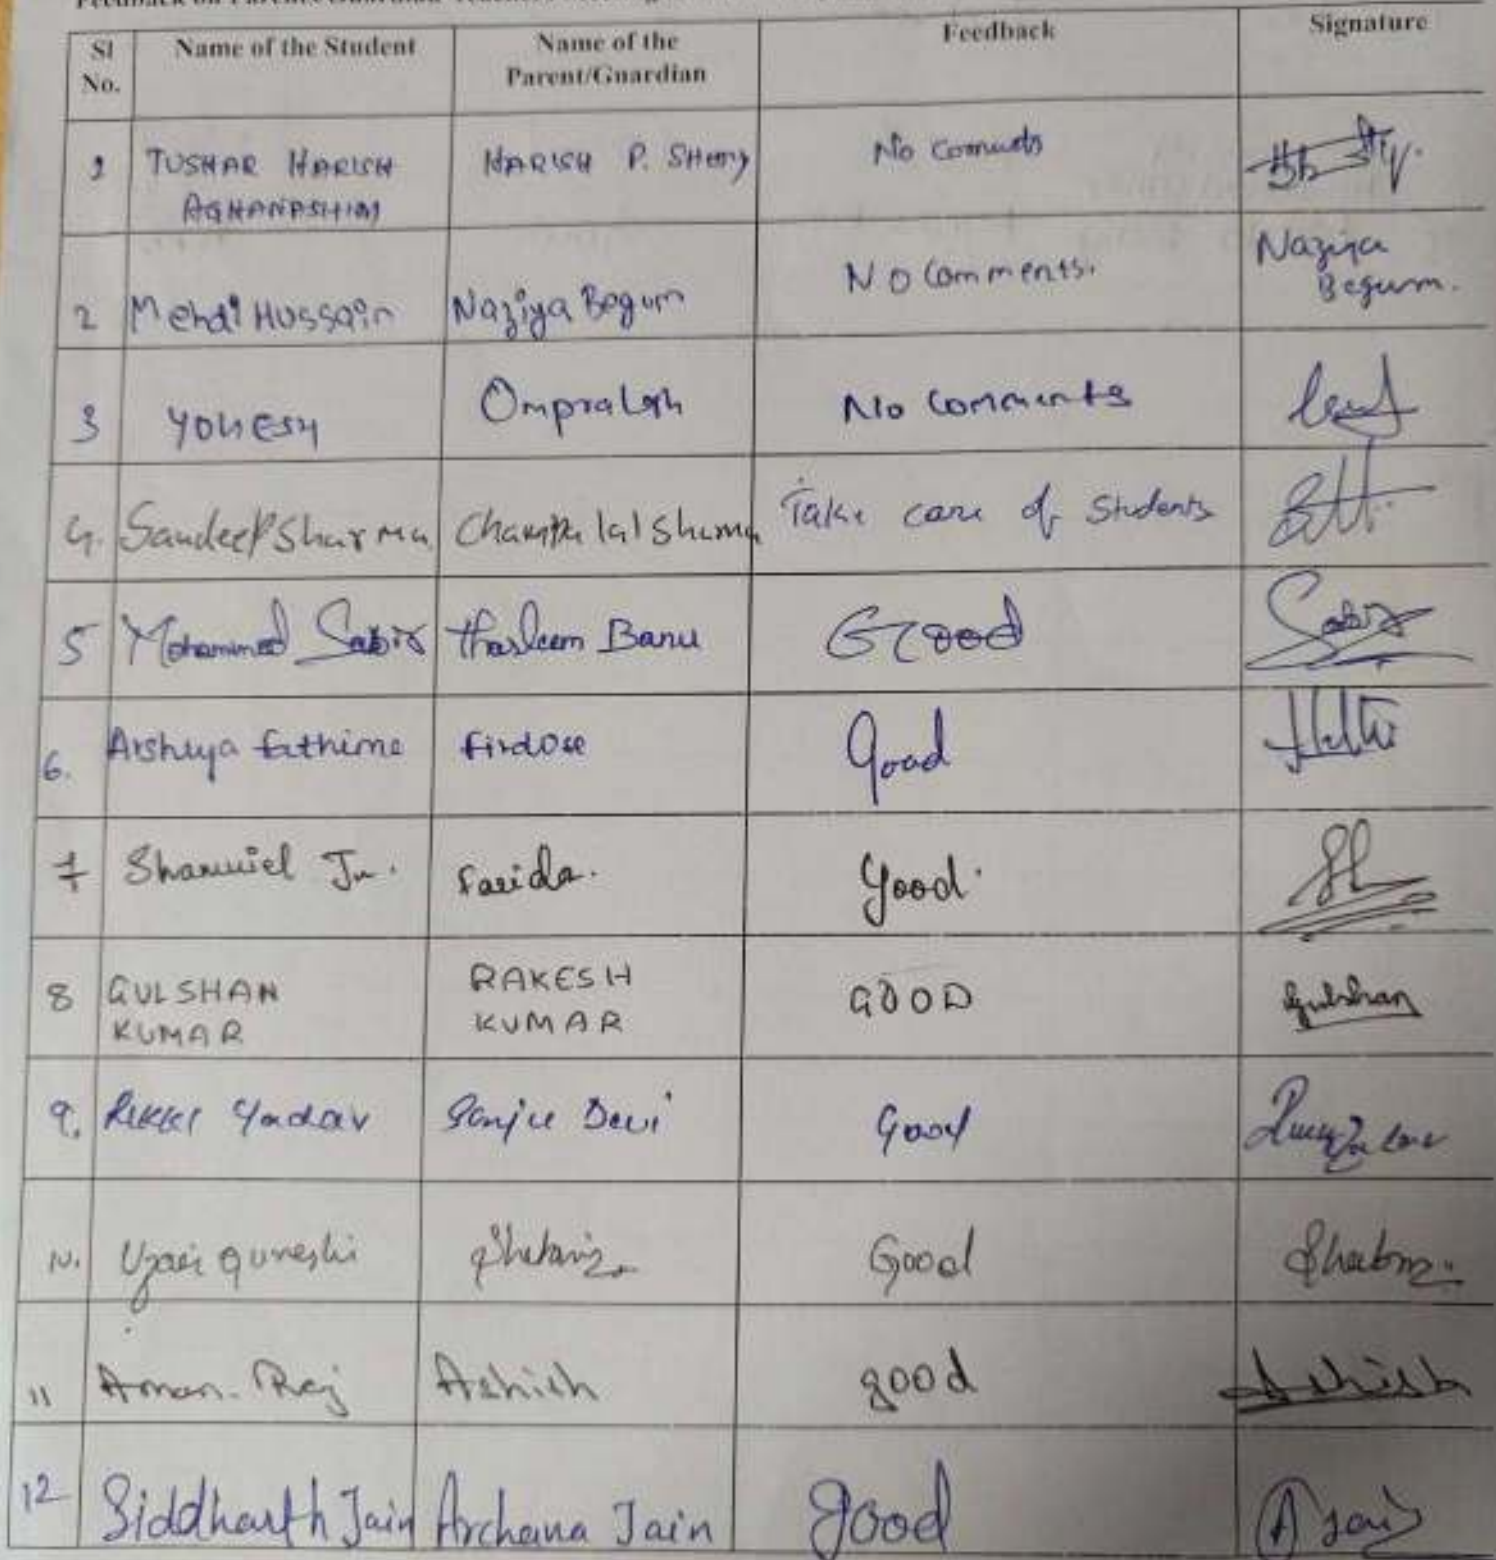 Sl No. Name of the Student Name of the Parent/Guardian Feedback Signature
1 TUSHAR HARISH AGHANASHINI HARISH P. Shetty No Comments
2 Mehdi Hussain Naziya Begum No Comments. Naziya Begum.
3 YOHESH Omprakash No Comments
4. Sandeep Sharma Champa lal Sharma Take care of Students
5 Mohammed Sabir tharleem Banu Good Sabir
6. Arshiya fathima firdose Good
7 Shamuiel Jn. Farida. Good.
8 GULSHAN KUMAR RAKESH KUMAR GOOD Gulshan
9. Rikki Yadav Sanju Devi Good
10. Uzair qureshi Good
11 Aman Raj Ashish good Ashish
12 Siddharth Jain Archana Jain good A Jain